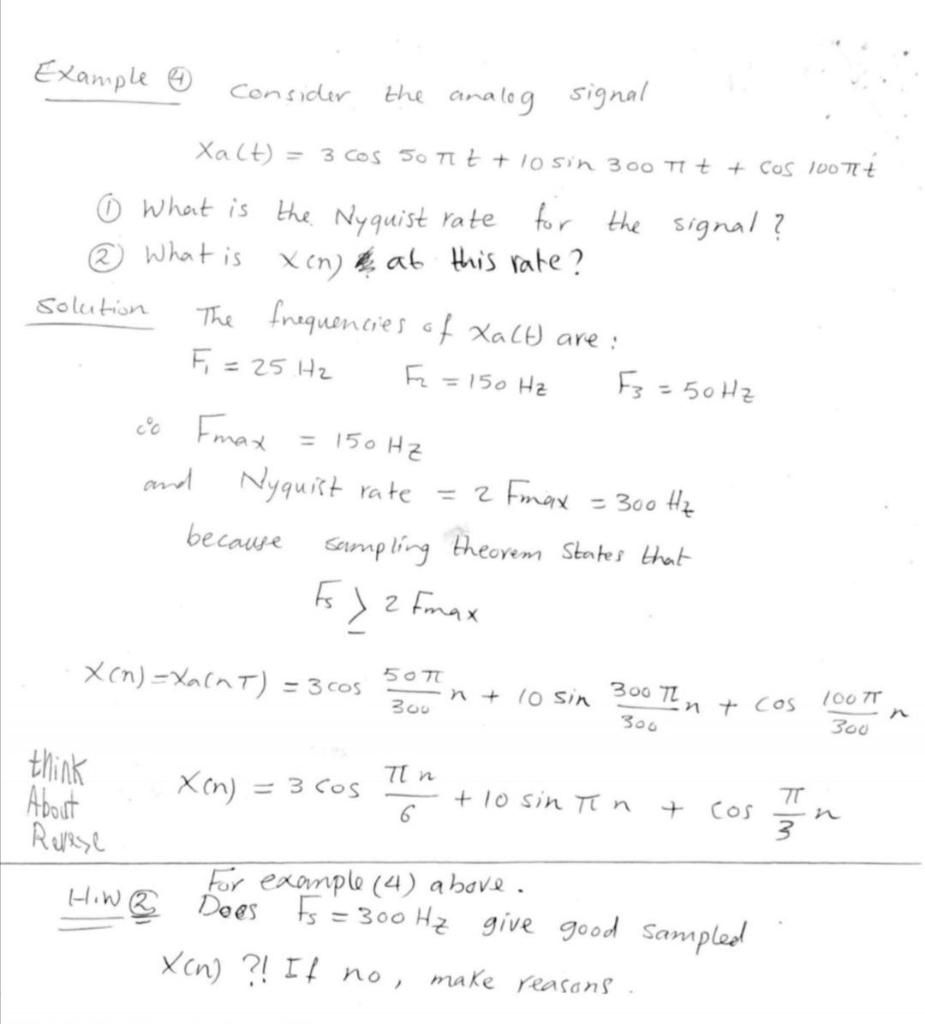 Example ④ Consider the analog signal
Xa(t) = 3 cos 50 π t + 10 sin 300 π t + cos 100 π t
① What is the Nyquist rate for the signal ?
② What is x(n) at this rate ?
Solution The frequencies of Xa(t) are :
F₁ = 25 Hz F₂ = 150 Hz F₃ = 50 Hz
∴ Fmax = 150 Hz
and Nyquist rate = 2 Fmax = 300 Hz
because sampling theorem states that
Fs ≥ 2 Fmax
X(n) = Xa(nT) = 3 cos 50π/300 n + 10 sin 300π/300 n + cos 100π/300 n
think
About
Reverse
X(n) = 3 cos πn/6 + 10 sin π n + cos π/3 n
H.W ② For example (4) above .
Does Fs = 300 Hz give good sampled
X(n) ?! If no , make reasons .